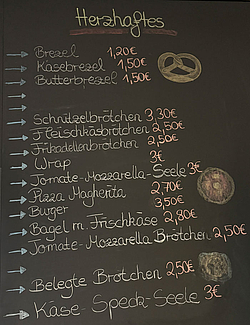 Herzhaftes
Brezel 1,20€
Käsebrezel 1,50€
Butterbrezel 1,50€
Schnitzelbrötchen 3,30€
Fleischkäsbrötchen 2,50€
Frikadellenbrötchen 2,50€
Wrap 3€
Tomate-Mozzarella-Seele 3€
Pizza Magherita 2,70€
Burger 3,50€
Bagel m. Frischkäse 2,80€
Tomate-Mozzarella Brötchen 2,50€
Belegte Brötchen 2,50€
Käse-Speck-Seele 3€